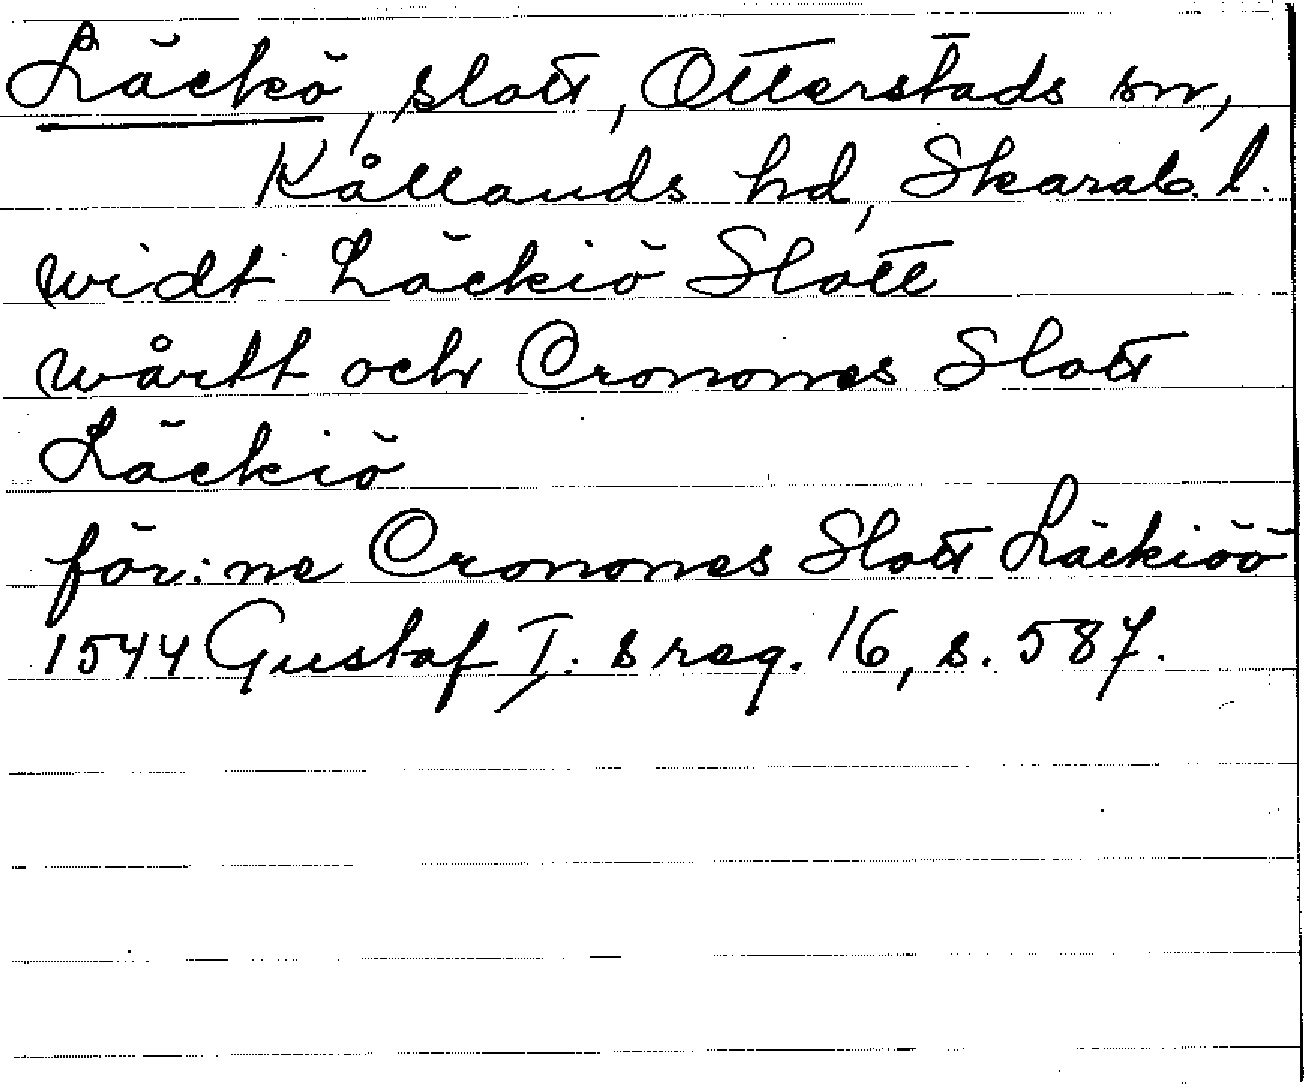 Läckö, slott, Otterstads sn,
Kållands hd, Skarab. l.
widt Läckiö Slott
wårtt och Cronones Slott
Läckiö
för:ne Cronones Slott Läckiöö
1544 Gustaf I:s reg. 16, s. 587.